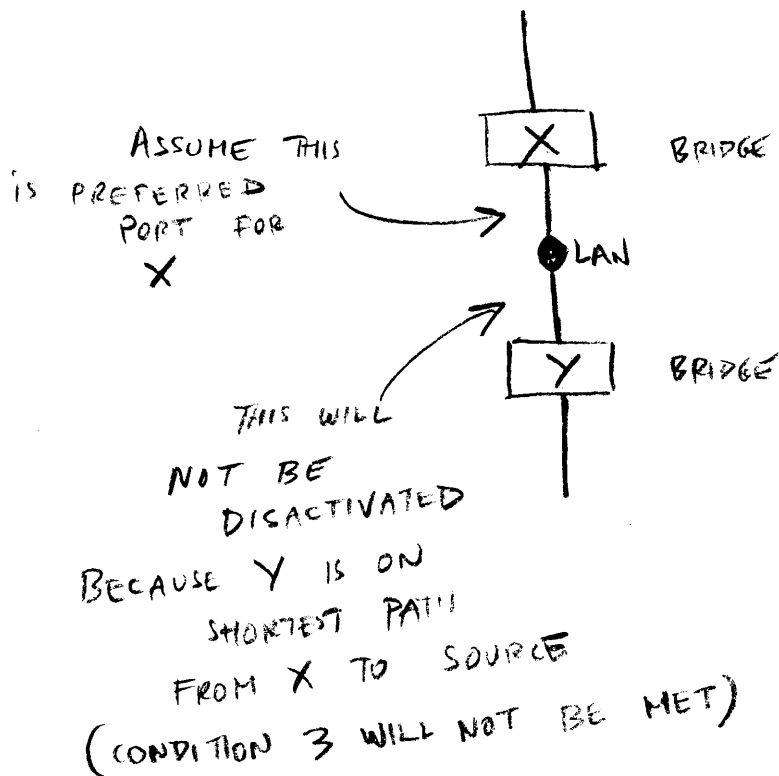 X
BRIDGE
ASSUME THIS
IS PREFERRED
PORT FOR
X
LAN
Y
BRIDGE
THIS WILL
NOT BE
DISACTIVATED
BECAUSE Y IS ON
SHORTEST PATH
FROM X TO SOURCE
(CONDITION 3 WILL NOT BE MET)